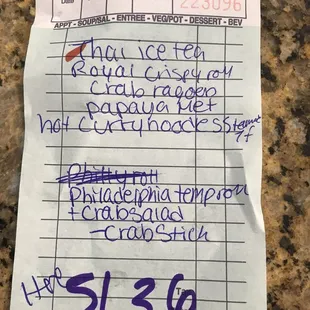 Date
223096
APPT - SOUP/SAL - ENTREE - VEG/POT - DESSERT - BEV
Thai ice tea
Royal crispy roll
Crab ragoen
papaya Met
hot curry noodess
Philadelphia temp roll
+ crab salad
- crab stick
Here 5136